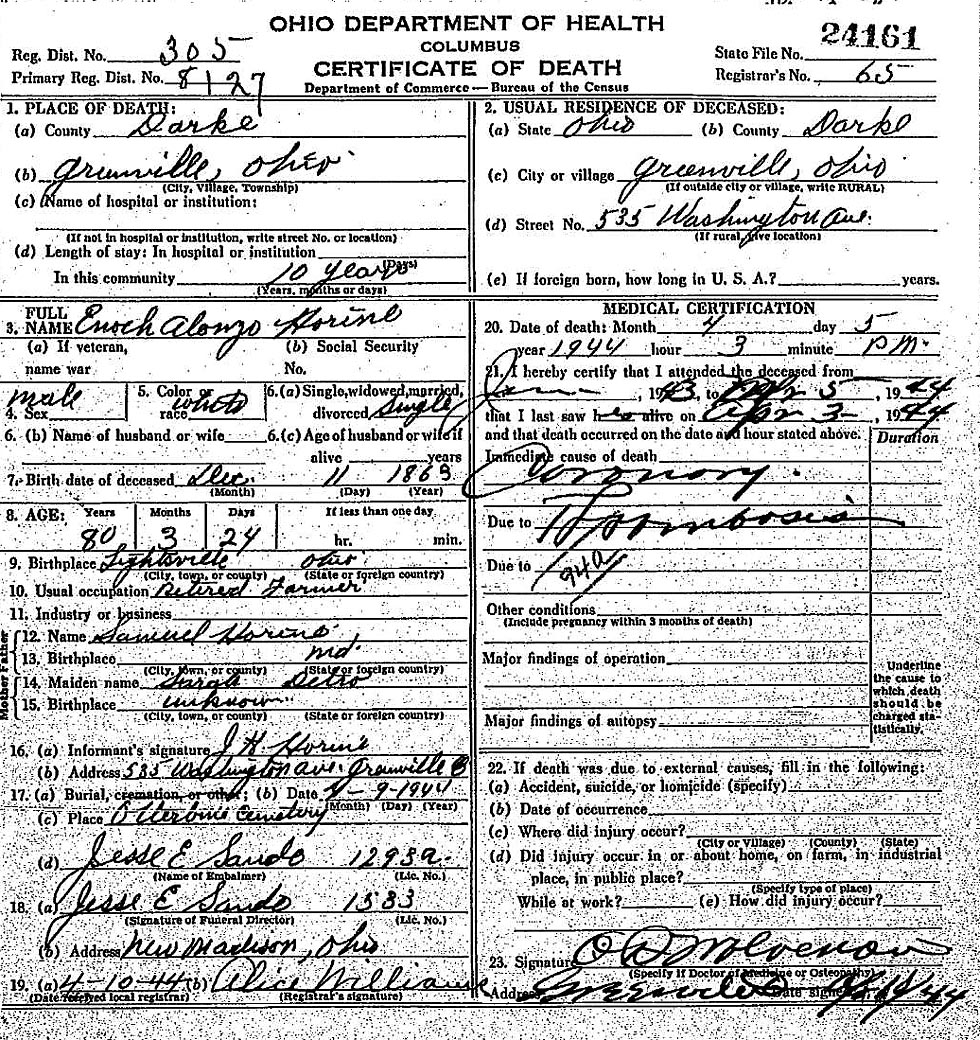 OHIO DEPARTMENT OF HEALTH
COLUMBUS
CERTIFICATE OF DEATH
Department of Commerce — Bureau of the Census
Reg. Dist. No. 305
Primary Reg. Dist. No. 8127
State File No. 24161
Registrar's No. 65
1. PLACE OF DEATH:
(a) County Darke
(b) Greenville, Ohio
(City, Village, Township)
(c) (Name of hospital or institution:
(If not in hospital or institution, write street No. or location)
(d) Length of stay: In hospital or institution
(Days)
In this community 10 years
(Years, months or days)
2. USUAL RESIDENCE OF DECEASED:
(a) State Ohio (b) County Darke
(c) City or village Greenville, Ohio
(If outside city or village, write RURAL)
(d) Street No. 535 Washington Ave.
(If rural, give location)
(e) If foreign born, how long in U. S. A.? years.
FULL
3. NAME Enoch Alonzo Horine
(a) If veteran, (b) Social Security
name war No.
4. Sex male 5. Color or race white 6. (a) Single, widowed, married, divorced Single
6. (b) Name of husband or wife 6. (c) Age of husband or wife if
alive years
7. Birth date of deceased Dec. 11 1863
(Month) (Day) (Year)
8. AGE: Years Months Days If less than one day
80 3 24 hr. min.
9. Birthplace Lightsville Ohio
(City, town, or county) (State or foreign country)
10. Usual occupation Retired Farmer
11. Industry or business
Father
12. Name Samuel Horine
13. Birthplace Md.
(City, town, or county) (State or foreign country)
Mother
14. Maiden name Sarah Detro
15. Birthplace unknown
(City, town, or county) (State or foreign country)
16. (a) Informant's signature J H Horine
(b) Address 535 Washington Ave. Greenville O
17. (a) Burial, cremation, or other; (b) Date 4-9-1944
(Month) (Day) (Year)
(c) Place Otterbine Cemetery
(d) Jesse E Sando 1293a.
(Name of Embalmer) (Lic. No.)
18. (a) Jesse E Sando 1533
(Signature of Funeral Director) (Lic. No.)
(b) Address New Madison, Ohio
19. (a) 4-10-44 (b) Alice Williams
(Date received local registrar) (Registrar's signature)
MEDICAL CERTIFICATION
20. Date of death: Month 4 day 5
year 1944 hour 3 minute P.M.
21. I hereby certify that I attended the deceased from
1943, to Apr 5, 1944
that I last saw h alive on Apr 3, 1944
and that death occurred on the date and hour stated above.
Duration
Immediate cause of death
Coronary
Due to Thrombosis
Due to 94a
Other conditions
(Include pregnancy within 3 months of death)
Major findings of operation
Major findings of autopsy
Underline
the cause to
which death
should be
charged sta-
tistically.
22. If death was due to external causes, fill in the following:
(a) Accident, suicide, or homicide (specify)
(b) Date of occurrence
(c) Where did injury occur?
(City or Village) (County) (State)
(d) Did injury occur in or about home, on farm, in industrial
place, in public place?
(Specify type of place)
While at work? (e) How did injury occur?
23. Signature
(Specify if Doctor of Medicine or Osteopathy)
Address Greenville O Date signed